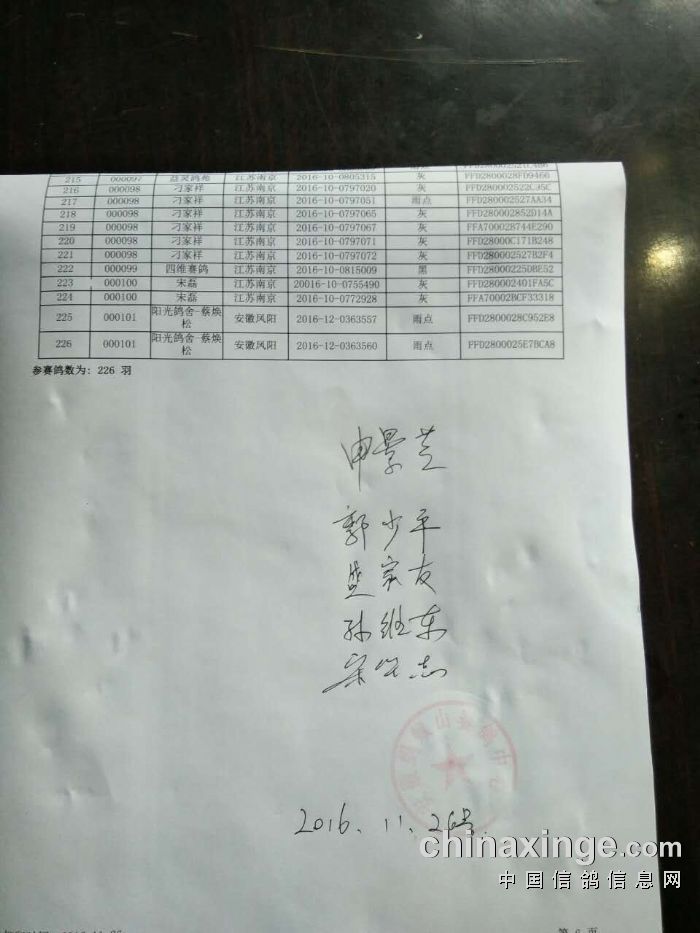 215 000097 益昊鸽苑 江苏南京 2016-10-0805315 灰 FFD2800028FD9466
216 000098 刁家祥 江苏南京 2016-10-0797020 灰 FFD280002522C35C
217 000098 刁家祥 江苏南京 2016-10-0797051 雨点 FFD280002527AA34
218 000098 刁家祥 江苏南京 2016-10-0797065 灰 FFD280002852D14A
219 000098 刁家祥 江苏南京 2016-10-0797067 灰 FFA700028744E290
220 000098 刁家祥 江苏南京 2016-10-0797071 灰 FFD28000C171B248
221 000098 刁家祥 江苏南京 2016-10-0797072 灰 FFD280002527B2F4
222 000099 四维赛鸽 江苏南京 2016-10-0815009 黑 FFD28000225DBE52
223 000100 宋磊 江苏南京 20016-10-0755490 灰 FFD280002401FA5C
224 000100 宋磊 江苏南京 2016-10-0772928 灰 FFA70002BCF33318
225 000101 阳光鸽舍-蔡焕松 安徽凤阳 2016-12-0363557 雨点 FFD2800028C952E8
226 000101 阳光鸽舍-蔡焕松 安徽凤阳 2016-12-0363560 雨点 FFD2800025E7BCA8
参赛鸽数为: 226 羽
申景芝
郭少平
宗友
孙继东
2016.11.26号.
chinaxinge.com
中国信鸽信息网